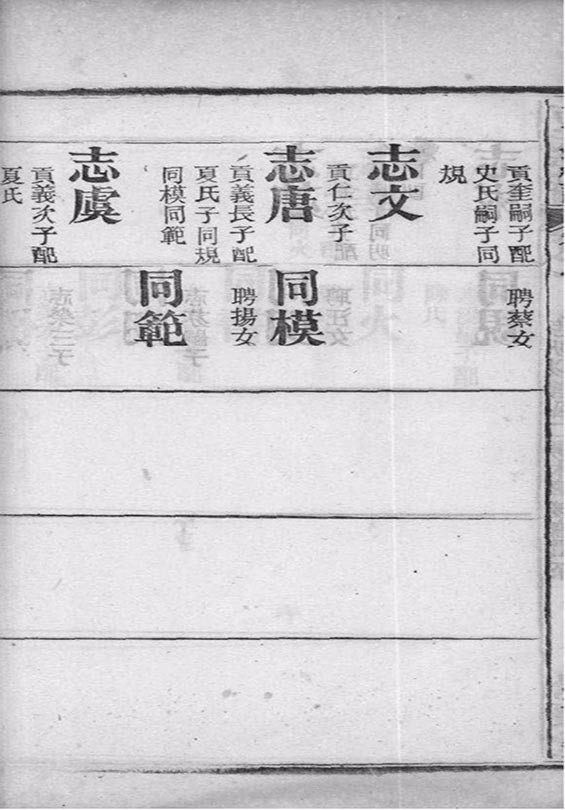 貢奎嗣子配
史氏嗣子同
規
志文
貢仁次子
志唐
貢義長子配
夏氏子同規
同模同範
志虞
貢義次子配
夏氏
聘蔡女
同模
聘揚女
同範